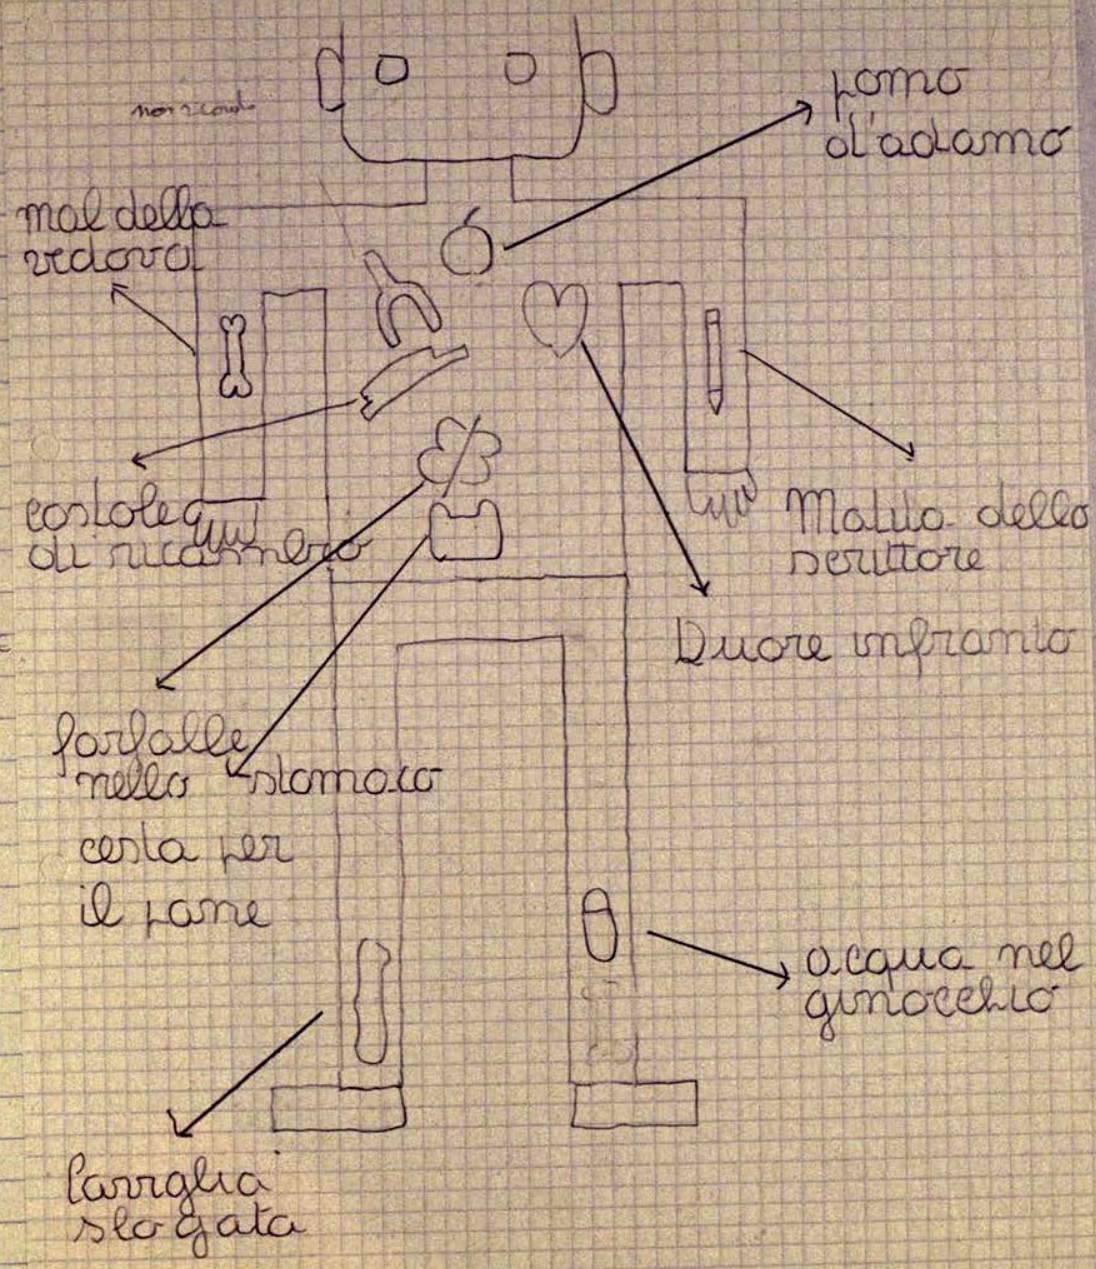 pomo
d'adamo
non ricordo
mal della
vedova
costole
di ricambio
Matita dello
scrittore
Cuore infranto
farfalle
nello stomaco
cesta per
il pane
acqua nel
ginocchio
Caviglia
slogata